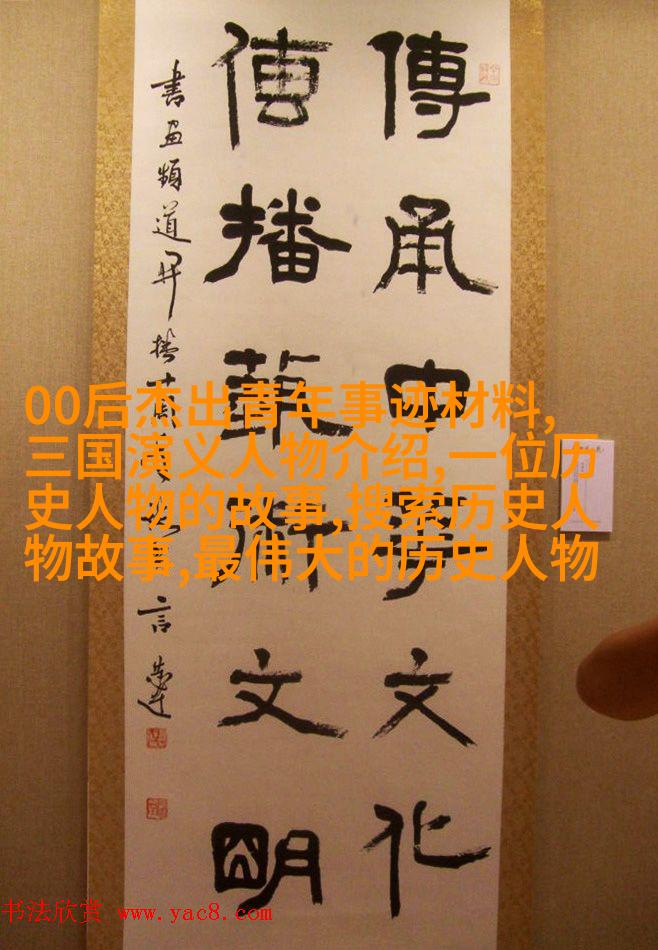 傳承中華文化
傳播藝術文明
書画頻道开播 言恭达
00后杰出青年事迹材料,
三国演义人物介绍,一位历
史人物的故事,搜索历史人
物故事,最伟大的历史人物
书法欣赏 www.yac8.com